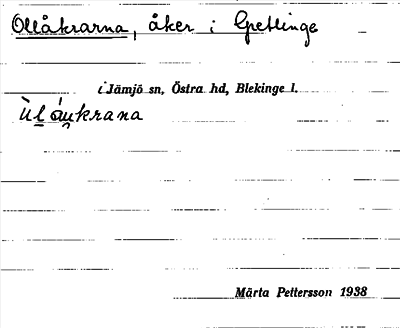 Ollåkrarna, åker i Grettinge
i Jämjö sn, Östra hd, Blekinge l.
Märta Pettersson 1938